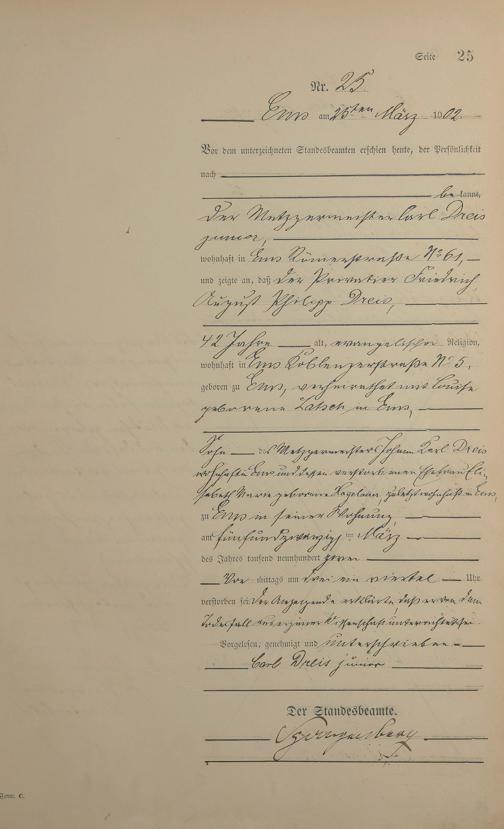 Seite 25
Nr. 25
Ems am 25ten März 1902
Vor dem unterzeichneten Standesbeamten erschien heute, der Persönlichkeit
nach
bekannt,
der Metzgermeister Carl Dreis
junior,
wohnhaft in Ems Römerstraße No 61,
und zeigte an, daß der Privatier Friedrich
August Philipp Dreis,
42 Jahre alt, evangelischer Religion,
wohnhaft in Ems Koblenzerstraße No 5,
geboren zu Ems, verheirathet mit Louise
geborene in Ems,
Sohn des Metzgermeister Johann Karl Dreis
wohnhaft Ems und dessen verstorbenen Ehefrau Eli-
sabeth Marie geborene zuletzt wohnhaft in Ems,
zu Ems in seiner Wohnung,
am fünfundzwanzigsten März
des Jahres tausend neunhundert zwei
Vor mittags um drei ein viertel Uhr
verstorben sei. Der Anzeigende erklärte, daß er von dem
Todesfall aus eigener Wissenschaft unterrichtet sei.
Vorgelesen, genehmigt und unterschrieben
Carl Dreis junior
Der Standesbeamte.
Form. C.